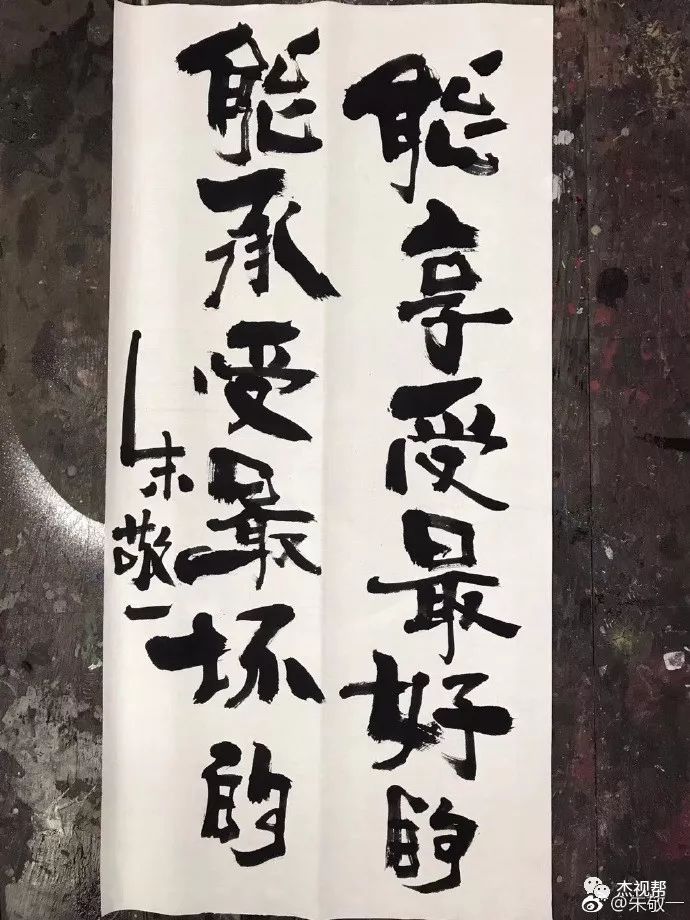 能享受最好的
能承受最坏的
朱敬一
杰视帮
@朱敬一